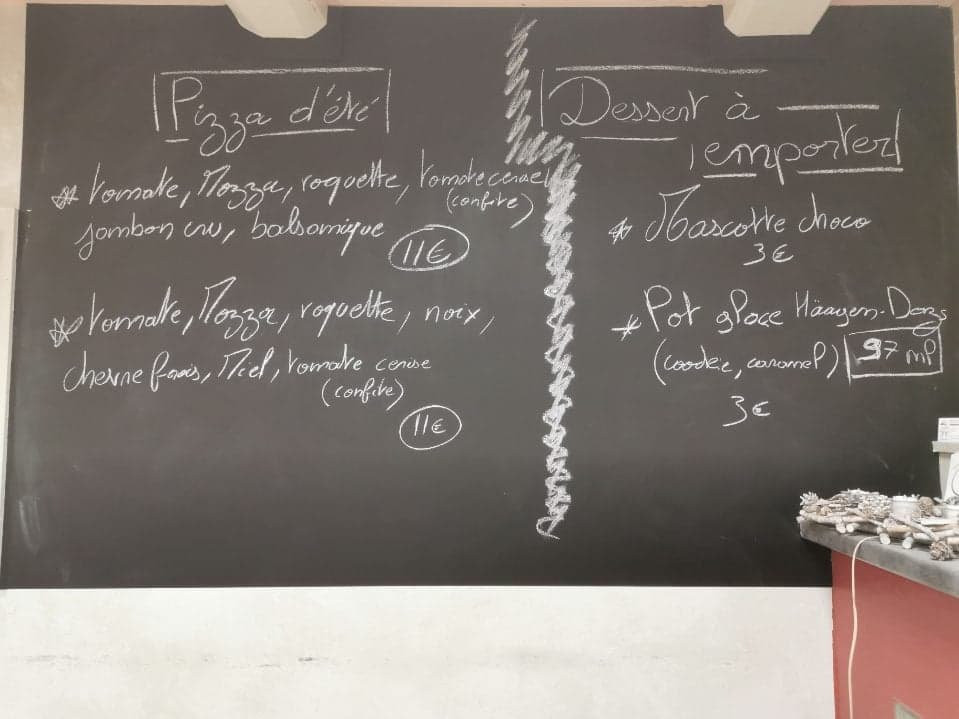 Pizza d'été
* tomate, Mozza, roquette, tomate cerise
(confite)
jambon cru, balsamique
11€
* tomate, Mozza, roquette, noix,
chevre frais, Miel, tomate cerise
(confite)
11€
Dessert à
emporter
* Mascotte choco
3€
* Pot glace Häagen-Dazs
(cookie, caramel) 97 ml
3€